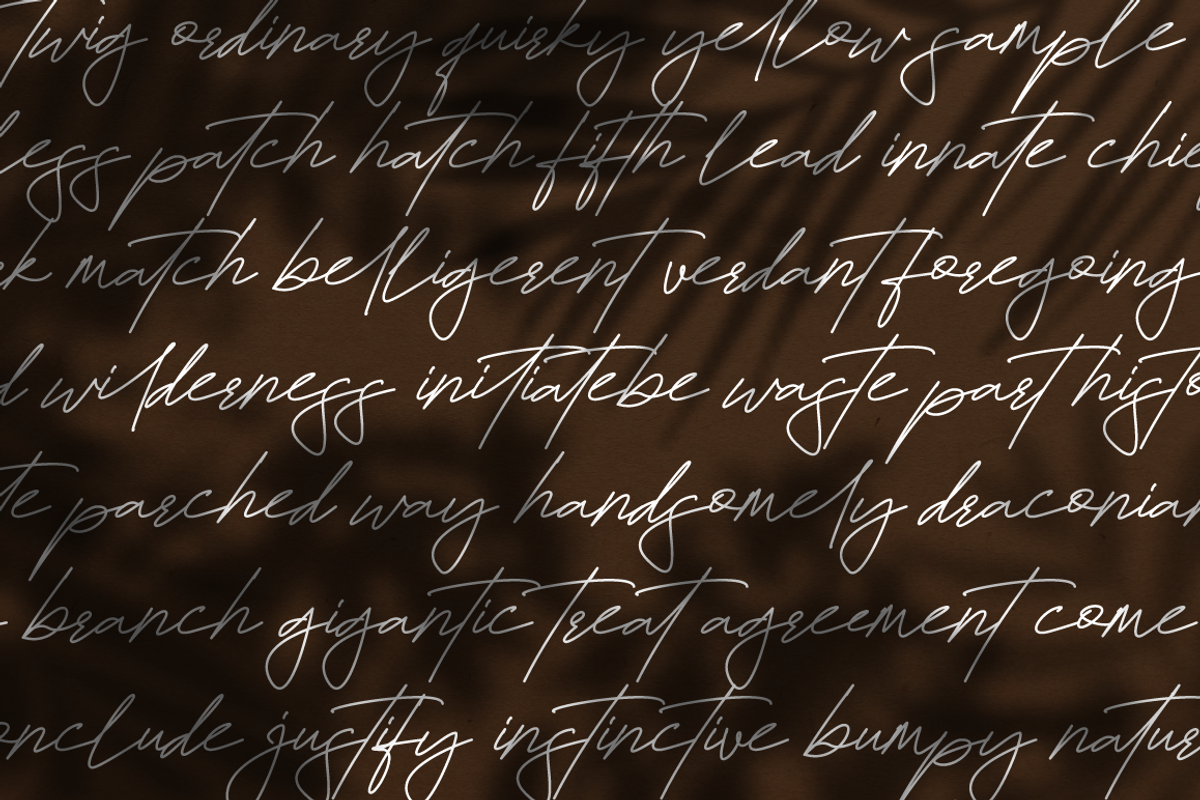 Twig ordinary quirky yellow sample
less patch hatch fifth lead innate chie
ek match belligerent verdant foregoing
d wilderness initiatebe waste part histo
te parched way handsomely draconian
branch gigantic treat agreement come
onclude justify instinctive bumpy natur